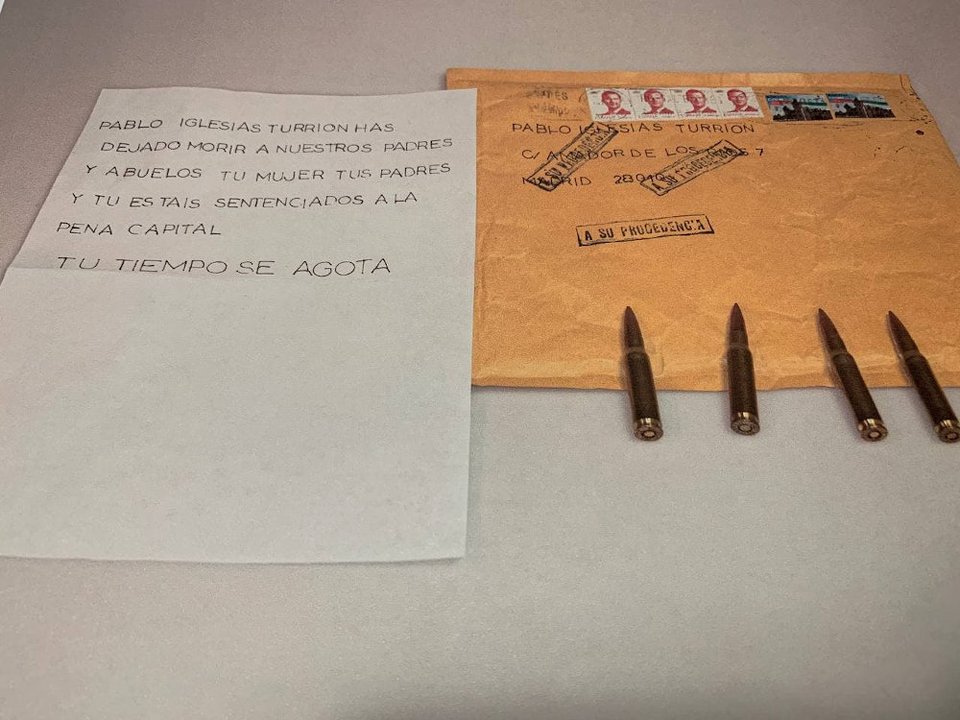 PABLO IGLESIAS TURRION HAS
DEJADO MORIR A NUESTROS PADRES
Y ABUELOS TU MUJER TUS PADRES
Y TU ESTAIS SENTENCIADOS A LA
PENA CAPITAL
TU TIEMPO SE AGOTA
PABLO IGLESIAS TURRION
C/ DOR DE LOS 7
28040
A SU PROCEDENCIA
A SU PROCEDENCIA
A SU PROCEDENCIA